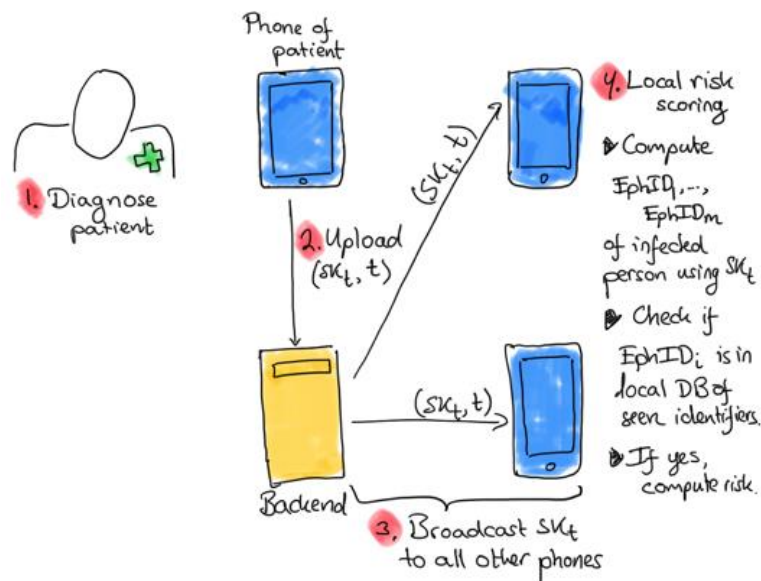 Phone of
patient
1. Diagnose
patient
2. Upload
(SK_t, t)
(SK_t, t)
(SK_t, t)
Backend
3. Broadcast SK_t
to all other phones
4. Local risk
scoring
▶ Compute
EphID_1,...,
EphID_m
of infected
person using SK_t
▶ Check if
EphID_i is in
local DB of
seen identifiers.
▶ If yes,
compute risk.